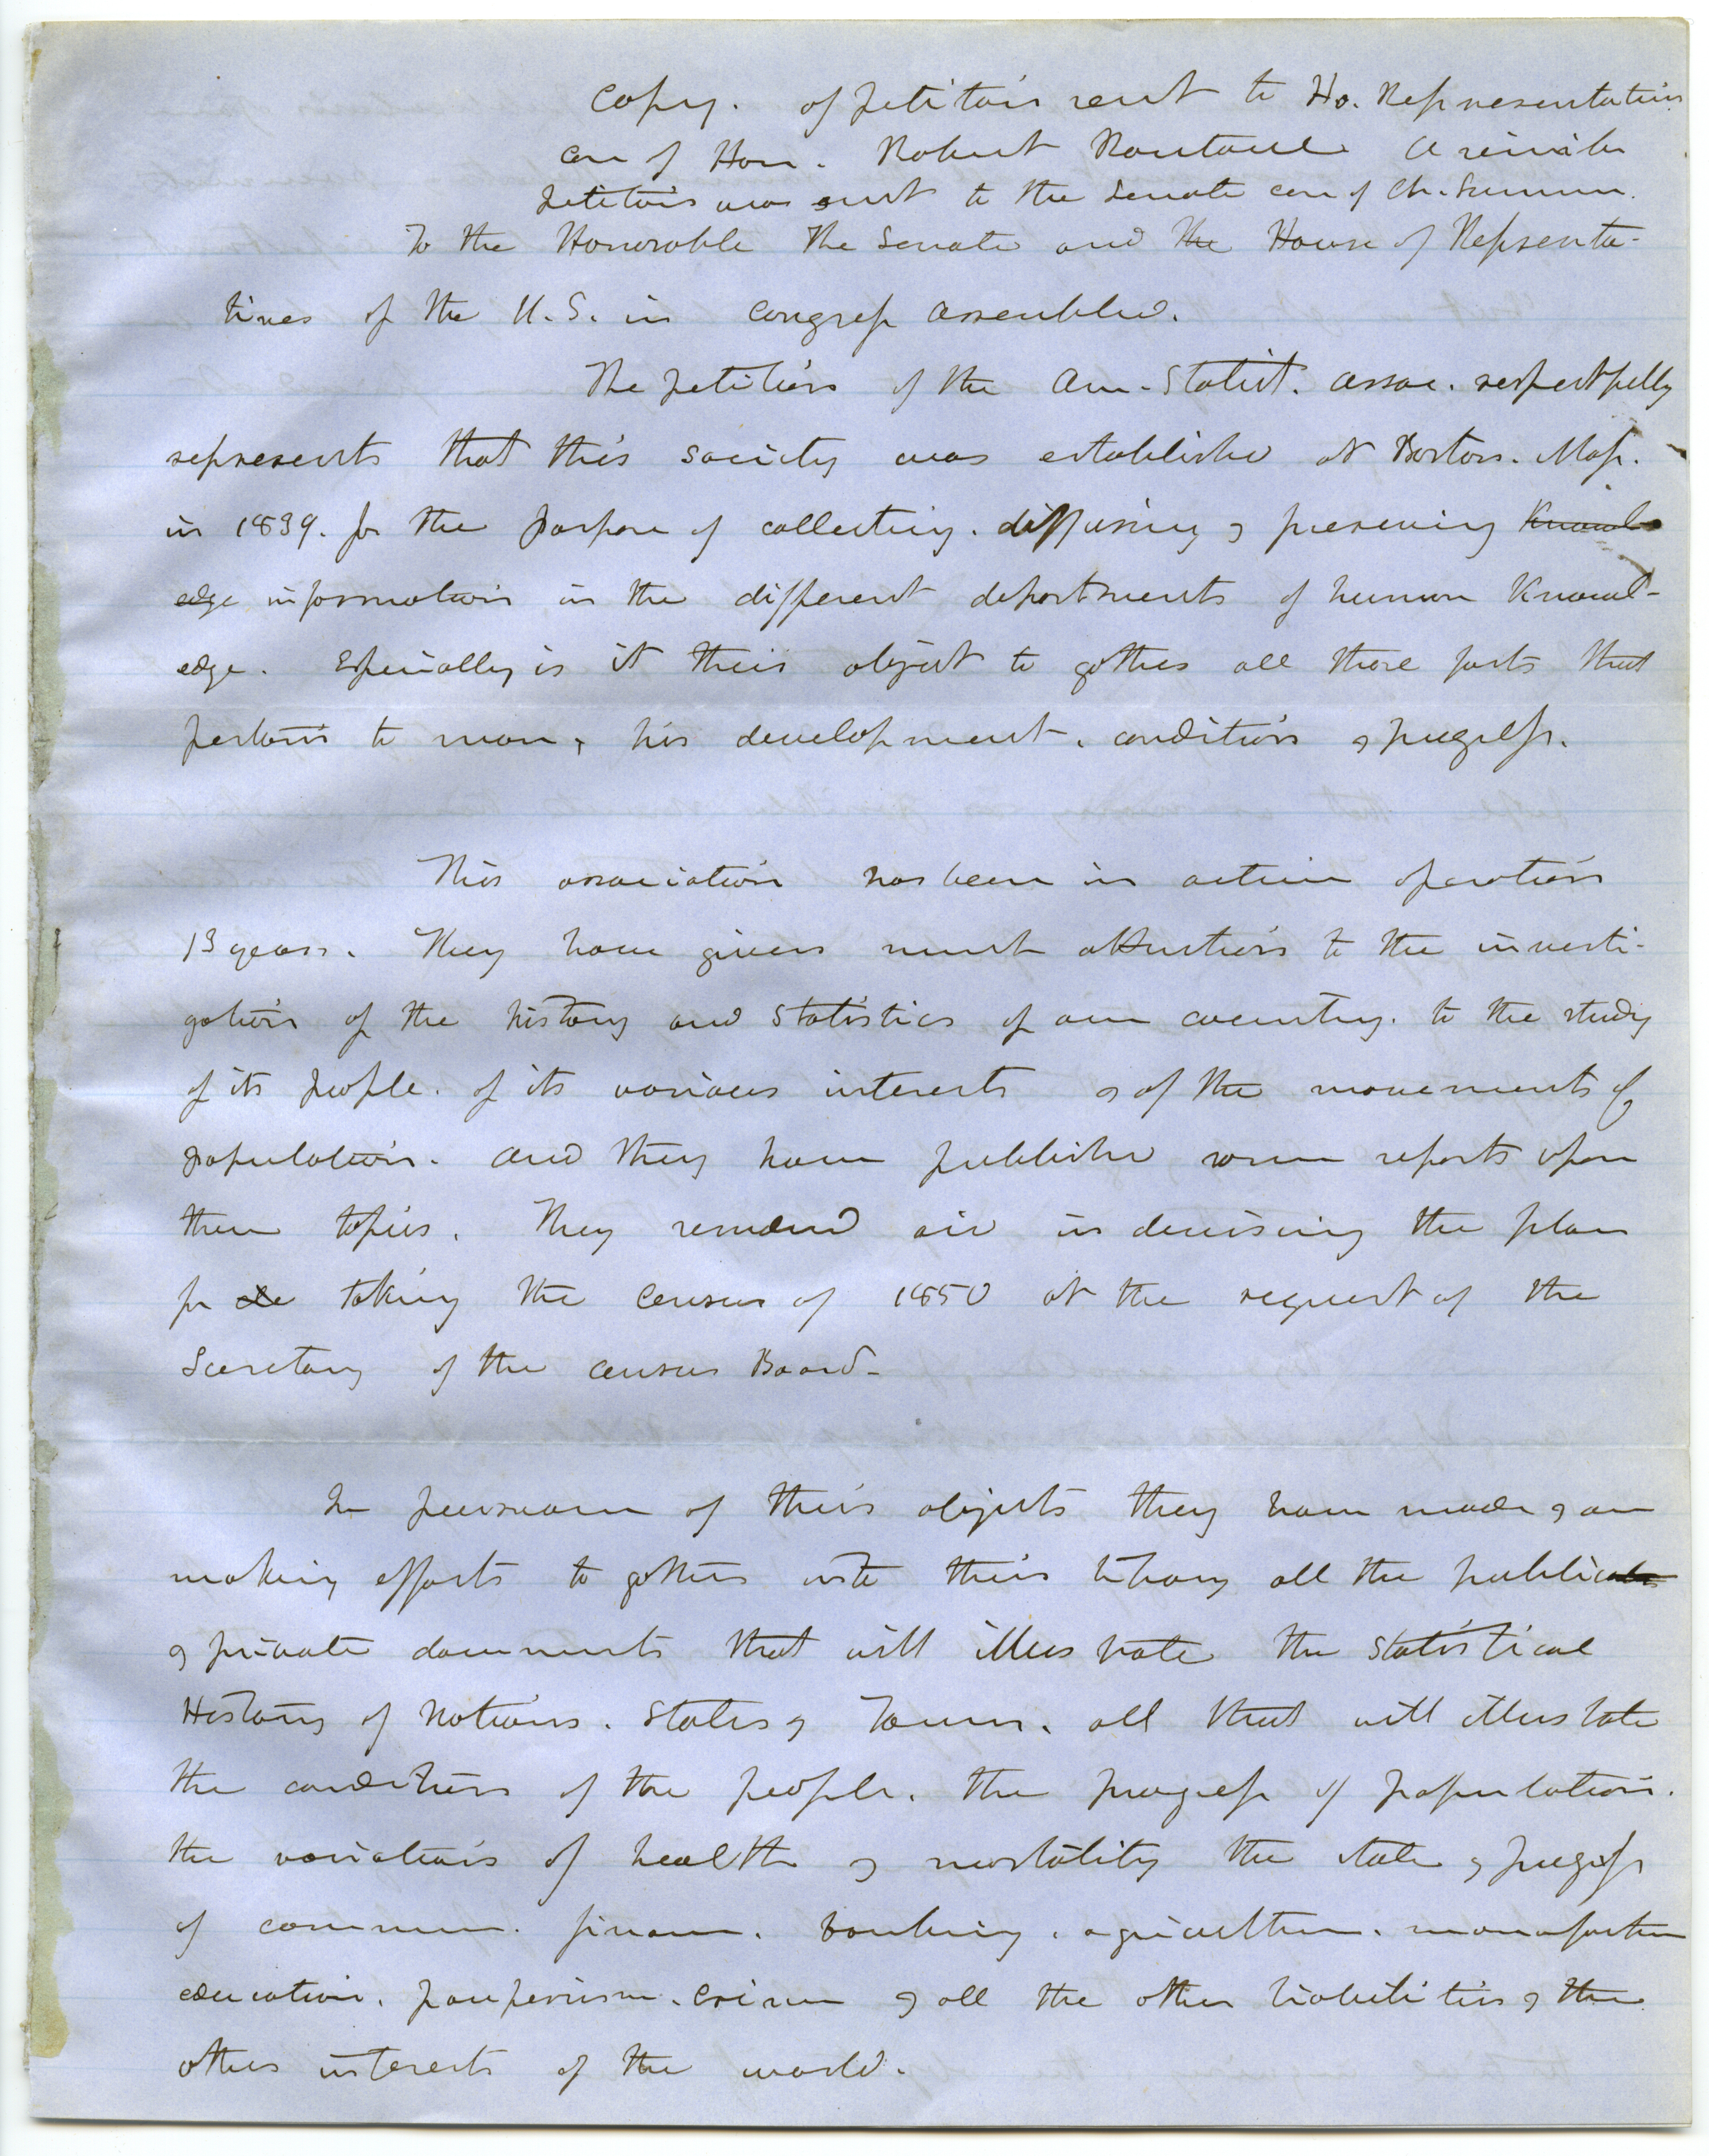 Copy. of petition sent to Ho. Representatives
care of Hon. Robert Rantoul A similar
petition was sent to the Senate care of Ch. Sumner.
To the Honorable The Senate and the House of Representa-
tives of the U.S. in Congress assembled.
The petition of the Am. Statist. Assoc. respectfully
represents that this society was established at Boston. Mass.
in 1839. for the purpose of collecting. diffusing & preserving Knowl
edge information in the different departments of human Knowl-
edge. Especially is it their object to gather all those facts that
pertain to man, his development. condition & progress.
This association has been in active operation
13 years. They have given much attention to the investi-
gation of the history and statistics of our country. to the study
of its people. of its various interests & of the movements of
population. and they have published some reports upon
these topics. They rendered aid in devising the plan
for taking the census of 1850 at the request of the
Secretary of the census Board-
In pursuance of their objects they have made & are
making efforts to gather into their library all the public
& private documents that will illustrate the statistical
History of Nations. States & Towns. all that will illustrate
the condition of the people. the progress of population.
the variations of health & mortality the state & progress
of commerce. finance. banking. agriculture. manufacture
education. pauperism. crime & all the other liabilities & the
other interests of the world.